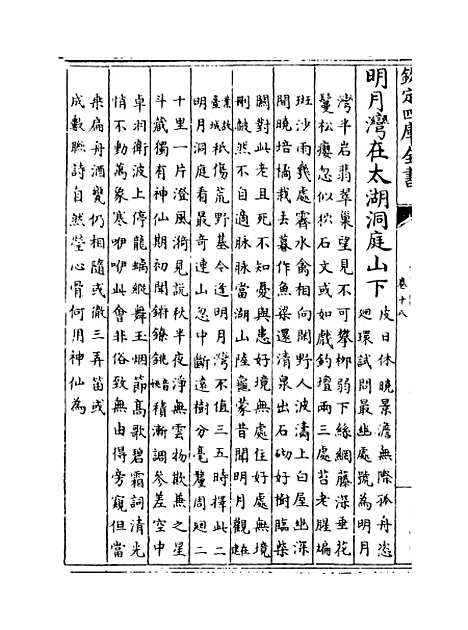 欽定四庫全書
卷十八
明月灣在太湖洞庭山下
皮日休曉景澹無際孤舟恣
迴環試問最幽處號為明月
灣半岩翡翠巢望見不可攀栁弱下絲網藤深垂花
鬘松癭忽似狖石文或如戲釣壇兩三處苔老腥斒
斑沙雨幾處霽水禽相向閑野人波濤上白屋幽深
間曉培橘栽去暮作魚梁還清泉出石砌好樹臨柴
關對此老且死不知憂與患好境無處住好處無境
刪赧然不自適脉脉當湖山陸龜蒙昔聞明月觀在建
業故臺城祗傷荒野基今逢明月灣不值三五時擇此二
明月洞庭看最奇連山忽中斷遠樹分毫釐周廻二
十里一片澄風漪見說秋半夜淨無雲物欺兼之星
斗藏獨有神仙期初聞鏘鐐銚音姚積漸調參差空中
卓羽衛波上停龍螭縱舞玉烟節高歌碧霜詞清光
悄不動萬象寒咿咿此會非俗致無由得旁窺但當
乘扁舟酒甕仍相隨或徹三弄笛或
成數聯詩自然瑩心骨何用神仙為